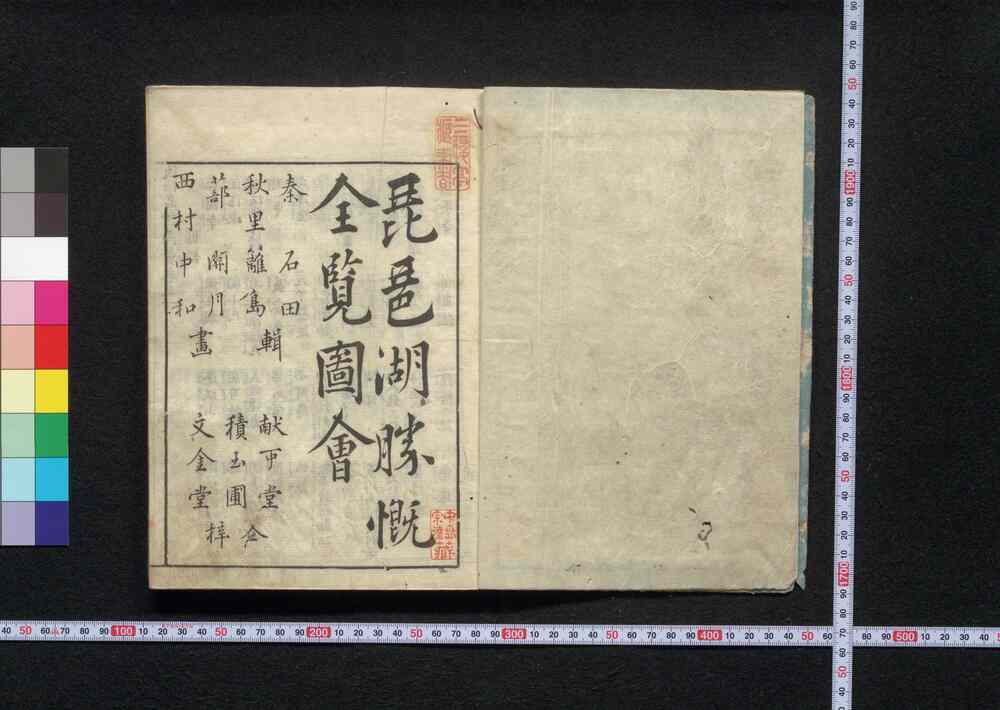 琵琶湖勝慨
全覧圖會
秦 石田
秋里籬島輯
蔀 関月
西村中和畫
献可堂
積玉圃
文金堂
仝梓